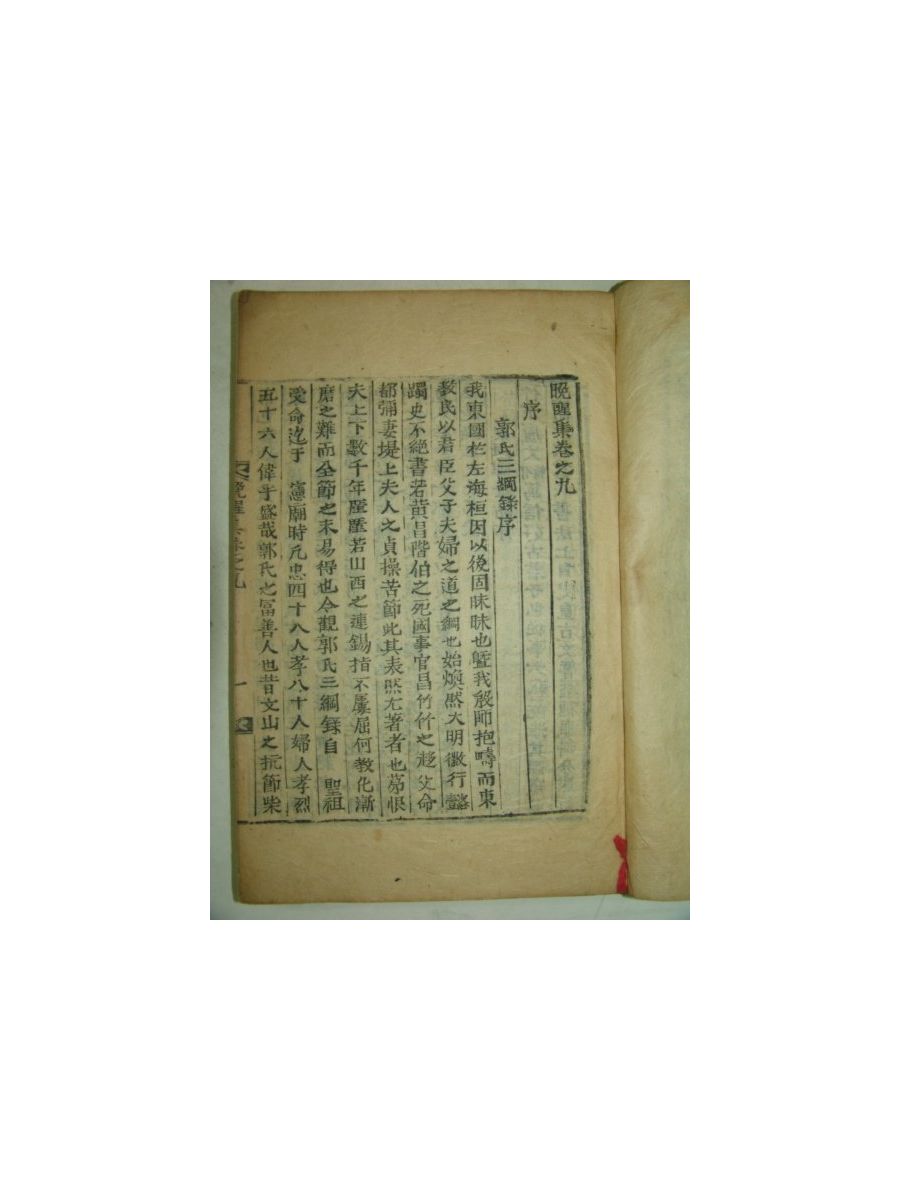 晩醒集卷之九
序
郭氏三綱錄序
我東國於左海桓因以後固昧昧也曁我殷師抱疇而東
敎民以君臣父子夫婦之道之綱也始煥然大明徽行懿
躅史不絶書若黃昌階伯之死國事官昌竹竹之趍父命
都彌妻堤上夫人之貞操苦節此其表然尤著者也苐恨
夫上下數千年歷歷若山西之連錫指不屢屈何敎化漸
磨之難而全節之未易得也今觀郭氏三綱錄自 聖祖
受命迄于 憲廟時凡忠四十八人孝八十人婦人孝烈
五十六人偉乎盛哉郭氏之富善人也昔文山之抗節柴
晩醒集卷之九 一